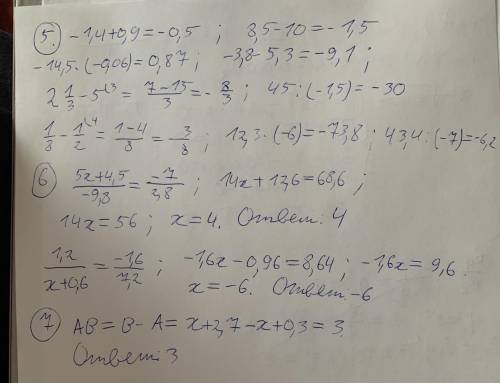 5. -1,4+0,9=-0,5 ; 8,5-10=-1,5
-14,5·(-0,06)=0,87; -3,8-5,3=-9,1;
2 1/3 - 5^3 = (7-15)/3 = -8/3; 45:(-1,5)=-30
1/8 - 1^4/2 = (1-4)/8 = -3/8; 12,3·(-6)=-73,8; 43,4:(-7)=-6,2
6 (5x+4,5)/(-9,8) = (-7)/(2,8); 14x+12,6=68,6;
14x=56; x=4. Ответ: 4
1,2/(x+0,6) = (-1,6)/(7,2); -1,6x-0,96=8,64; -1,6x=9,6.
x=-6. Ответ: -6
7 AB=B-A=x+2,7-x+0,3=3.
Ответ: 3